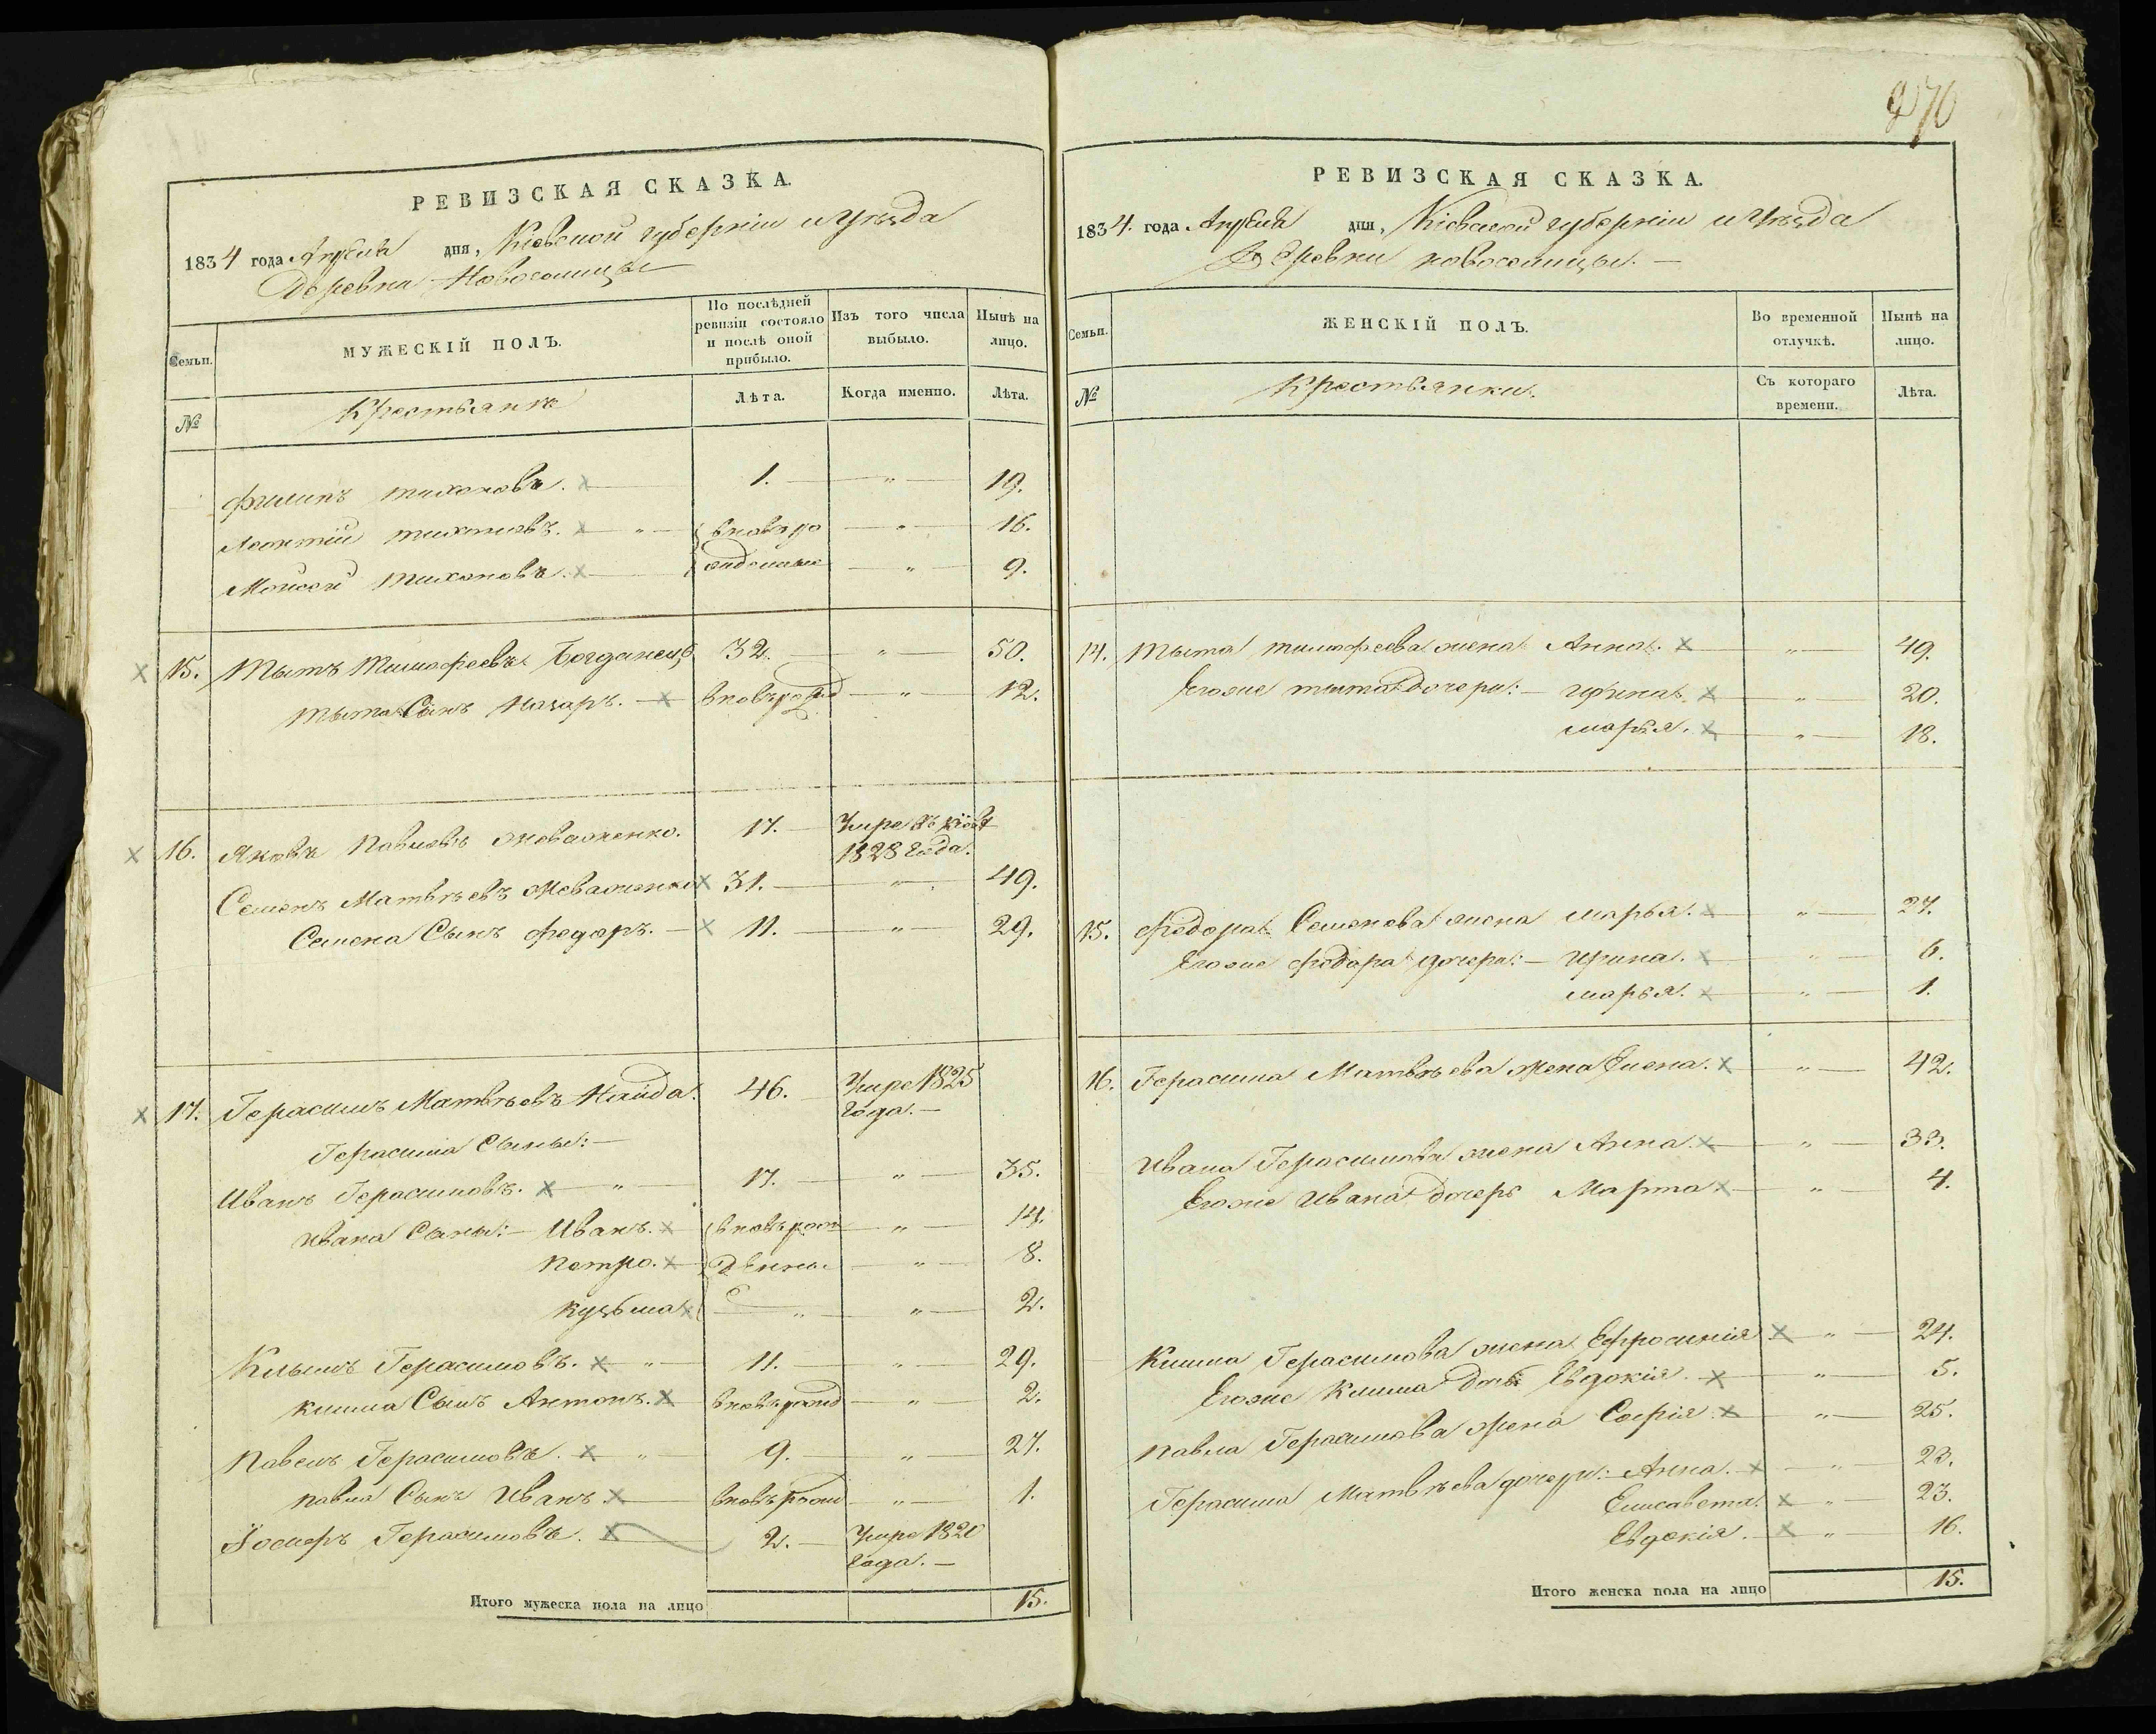 РЕВИЗСКАЯ СКАЗКА.
1834 года Апреля дня, Кіевской губерніи и уѣзда
Деревни Новоселицы
Семьи.
МУЖЕСКІЙ ПОЛЪ.
По послѣдней ревизіи состояло и послѣ оной прибыло.
Изъ того числа выбыло.
Нынѣ на лицо.
№
Крестьяне
Лѣта.
Когда именно.
Лѣта.
Филипъ Тихоновъ. 1. — „ — 19.
Леонтій Тихоновъ. „ вновь ро — „ — 16.
Мойсей Тихоновъ. — „ — 9.
15. Тытъ Тимофеевъ Богданецъ 32. — „ — 50.
Тыта Сынъ Назаръ. — вновь рожд — „ — 12.
16. Яковъ Павловъ 17. — Умре
1828 года.
Семенъ Матвѣевъ 31. — „ — 49.
Семена Сынъ Федоръ. — 11. — „ — 29.
17. Герасимъ Матвѣевъ Найда. 46. — Умре 1825
года. —
Герасима Сыны: —
Иванъ Герасимовъ. „ 17. — „ — 35.
Ивана Сыны: — Иванъ. вновь рож — „ — 14.
Петро. денны — „ — 8.
Кузьма „ — „ — 2.
Клымъ Герасимовъ. „ 11. — „ — 29.
Клима Сынъ Антонъ. вновь рожд — „ — 2.
Павелъ Герасимовъ. „ 9. — „ — 27.
Павла Сынъ Иванъ. вновь рожд — „ — 1.
Іосифъ Герасимовъ. 2. — Умре 1820
года. —
Итого мужеска пола на лицо 15.
270
РЕВИЗСКАЯ СКАЗКА.
1834. года Апреля дня, Кіевской губерніи и уѣзда
Деревни Новоселицы. —
Семьи.
ЖЕНСКІЙ ПОЛЪ.
Во временной отлучкѣ.
Нынѣ на лицо.
№
Крестьянки.
Съ котораго времени.
Лѣта.
14. Тыта Тимофеева жена Анна. „ — 49.
Егоже Тыта дочери: — Ирина. „ — 20.
Марья. „ — 18.
15. Федора Семенова жена Марья. „ — 27.
Егоже Федора дочери: — Ирина. „ — 6.
Марья. „ — 1.
16. Герасима Матвѣева жена Елена. „ — 42.
Ивана Герасимова жена Анна. „ — 33.
Егоже Ивана дочерь Марта „ — 4.
Клима Герасимова жена Ефросинія „ — 24.
Егоже Клима дочь Евдокія. „ — 5.
Павла Герасимова жена Софія. „ — 25.
Герасима Матвѣева дочери: Анна. „ — 23.
Елисавета. „ — 23.
Евдокія. „ — 16.
Итого женска пола на лицо 15.